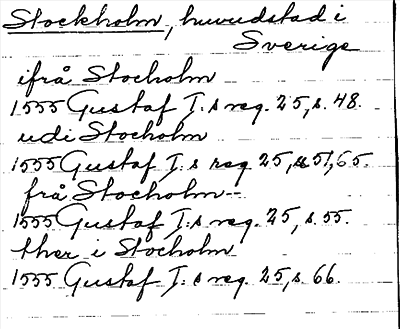 Stockholm, huvudstad i
Sverige
ifrå Stocholm
1555 Gustaf I:s reg. 25, s. 48.
udi Stocholm
1555 Gustaf I:s reg. 25, s. 51, 65.
frå Stocholm--
1555 Gustaf I:s reg. 25, s. 55.
ther i Stocholm
1555 Gustaf I:s reg. 25, s. 66.